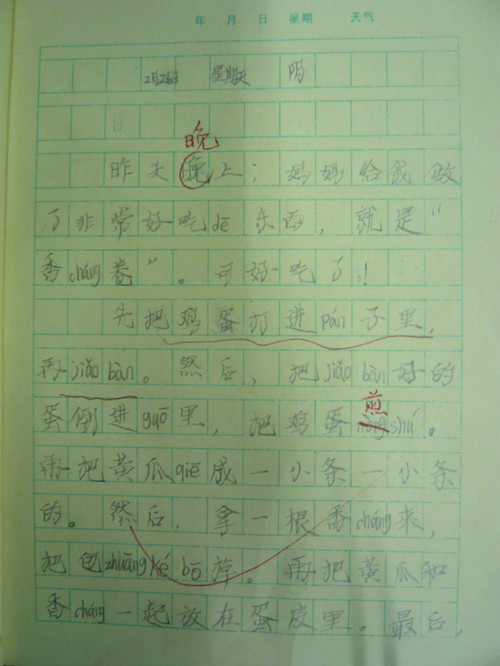 年 月 日 星期 天气
2月26日 星期天 阴
日
晚
昨天晚上,妈妈给我做
了非常好吃dē东西,就是“
香cháng卷”。可好吃了!
先把鸡蛋打进pán子里,
再jiǎo bàn。然后,把jiǎo bàn好的
煎
蛋倒进guō里,把鸡蛋shú。
再把黄瓜qiē成一小条一小条
的。然后,拿一根香cháng来,
把包zhuāng ké bō掉。再把黄瓜和
香cháng一起放在蛋皮里。最后,